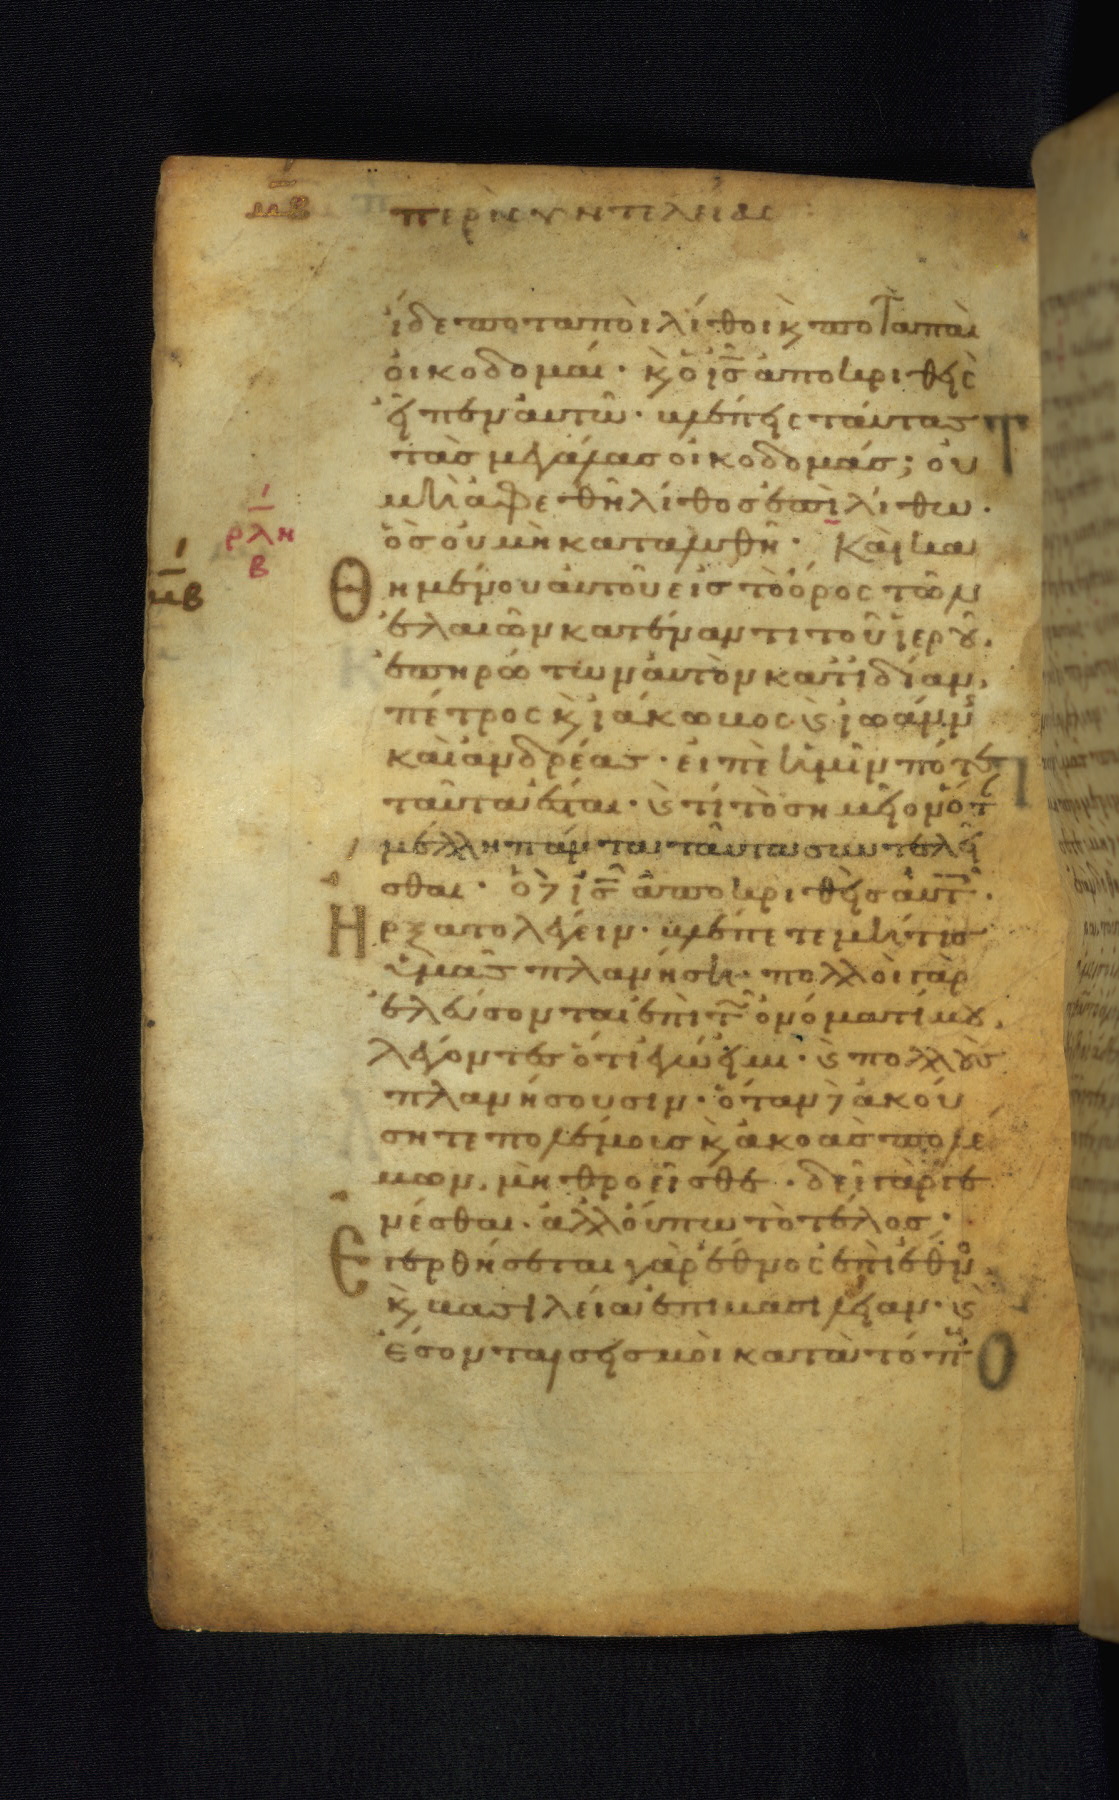 μβ περὶ συντελείας
ἴδε ποταποὶ λίθοι κ ποταπαὶ
οἰκοδομαί · κ ὁ ις ἀποκριθεὶς
εἶπεν αὐτῶ · βλέπεις ταύτας
τὰς μεγάλας οἰκοδομάς ; οὐ
μὴ ἀφεθῆ λίθος ἐπὶ λίθω ·
ὃς οὐ μὴ καταλυθῆ · Καὶ κα
θημένου αὐτοῦ εἰς τὸ ὄρος τῶν
ἐλαιῶν κατέναντι τοῦ ἱεροῦ .
ἐπηρώτων αὐτὸν κατιδίαν .
πέτρος κ ἰάκωβος κ ἰωάνν
καὶ ἀνδρέας · εἰπὲ ἡμῖν πότε
ταῦτα ἔσται · κ τί τὸ σημεῖον ὅτ
μέλλη πάντα ταῦτα συντελεῖ
σθαι · ὁ δ ις ἀποκριθεὶς αὐτ ·
Ηρξατο λέγειν · βλέπετε μή τις
ὑμᾶς πλανήση · πολλοὶ γὰρ
ἐλεύσονται ἐπὶ τ ὀνόματί μου .
λέγοντες ὅτι ἐγώ εἰμι · κ πολλοὺς
πλανήσουσιν · ὅταν δ ἀκού
σητε πολέμοις κ ἀκοὰς πολέ
μων . μὴ θροεῖσθε · δεῖ γὰρ γε
νέσθαι · ἀλλ οὔπω τὸ τέλος ·
Εγερθήσεται γὰρ ἔθνος ἐπὶ ἔθν
κ βασιλεία ἐπὶ βασιλείαν · κ
ἔσονται σεισμοὶ κατὰ τόπ
ρλη
β
μβ